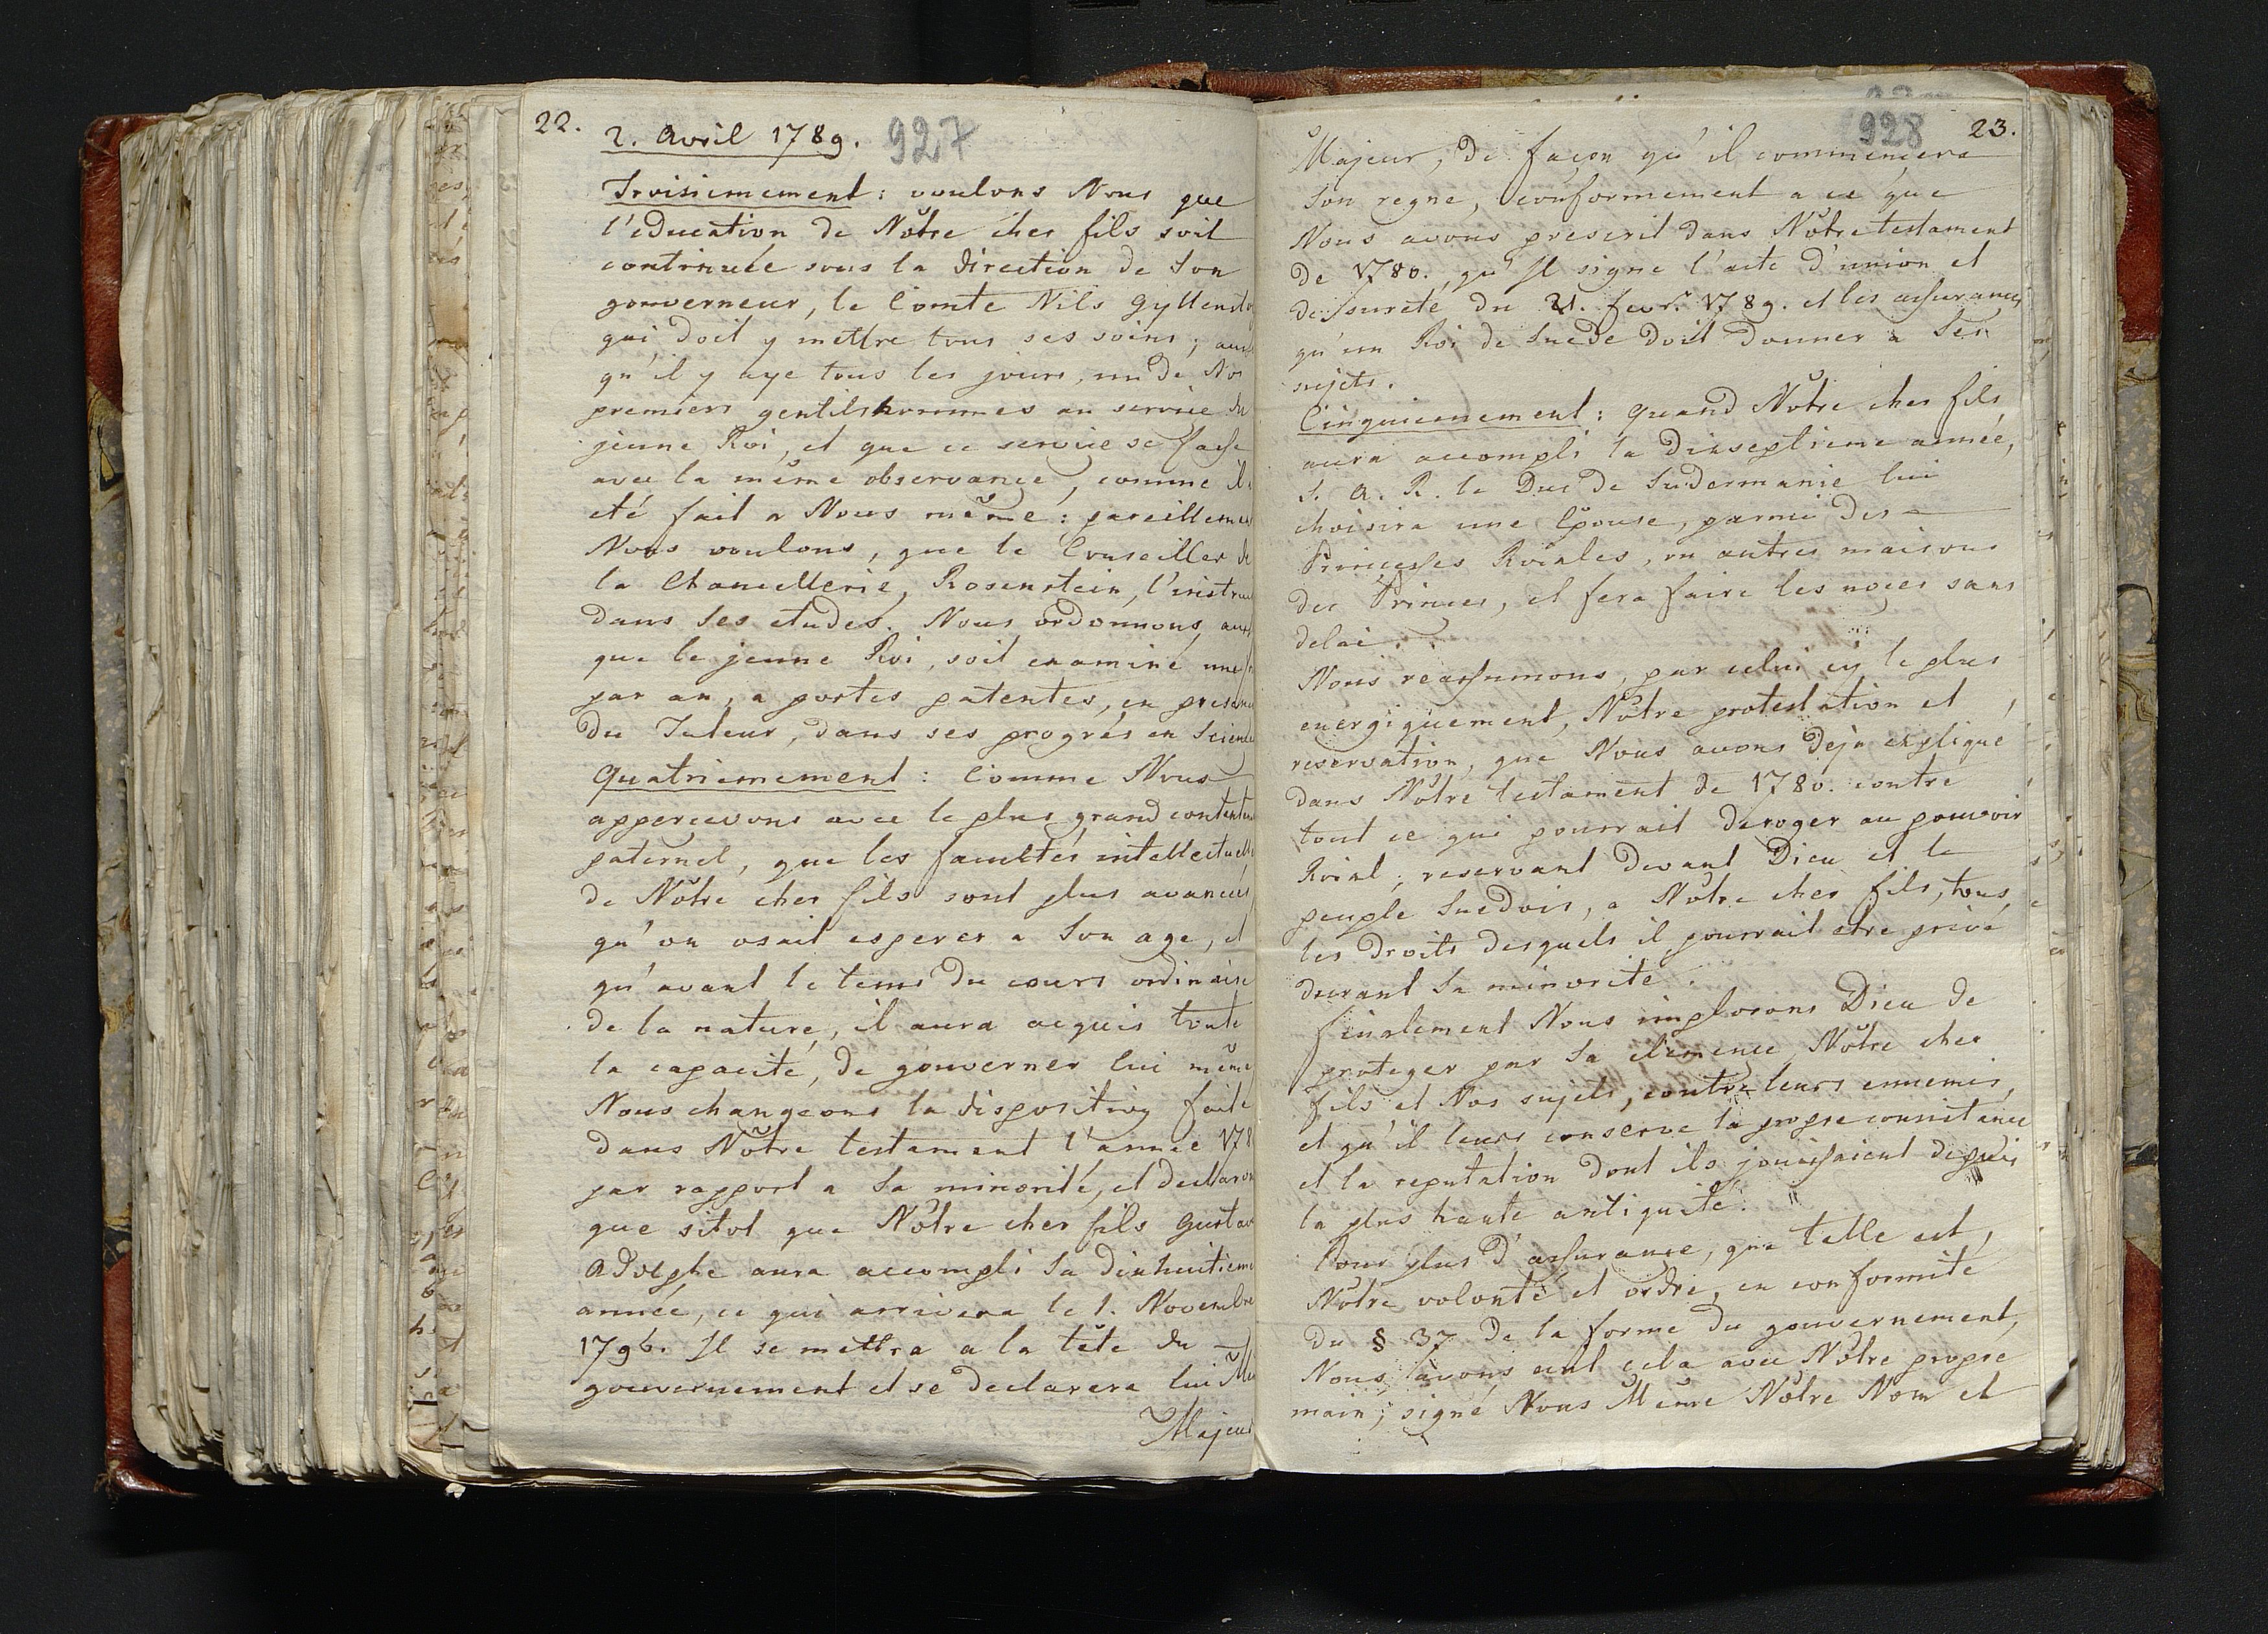 22.
2. Avril 1789.
927
Troisiemement: voulons Nous que
l'education de Nôtre cher fils soit
continuée sous la direction de Son
gouverneur, le Comte Nils Gyllensto
qui doit y mettre tous ses soins; aus
qu'il y aye tous les jours, un de Nos
premiers gentilshommes au service du
jeune Roi, et que ce service se fasse
avec la même observance, comme il a
eté fait a Nous même: pareillement
Nous voulons, que le Conseiller de
la Chancellerie, Rosenstein, l'instrui
dans Ses etudes. Nous ordonnons aus
que le jeune Roi, soit examiné une
par an, a portes patentes, en presen
du Tuteur, dans ses progrés en Scienc
Quatriemement: Comme Nous
appercevons avec le plus grand contente
paternel, que les facultés intellectuell
de Nôtre cher fils sont plus avancées
qu'on osait esperer a Son age, et
qu'avant le tems du cours ordinaire
de la nature, il aura acquis toute
la capacité, de gouverner lui même
Nous changeons la disposition faite
dans Nôtre testament l'année 178
par rapport a Sa minorité, et declaron
que sitot que Nôtre cher fils Gustav
Adolphe aura accompli Sa dixhuitieme
année, ce qui arrivera le 1. Novembre
1796. Il se mettra a la tête du
gouvernement et se declarera lui Me
Majeur
928
23.
Majeur, de façon qu'il commencera
Son regne, conformement a ce que
Nous avons prescrit dans Nôtre testament
de 1780., qu'Il signe l'acte d'union et
de sureté du 21. fevr. 1789. et les assurances
qu'un Roi de Suede doit donner a Ses
sujets.
Cinquiemement: quand Nôtre cher fils
aura accompli la dixseptieme année,
S. A. R. le Duc de Sudermanie lui
choisira une Epouse, parmi des
Princesses Roiales, ou autres maisons
des Princes, et fera faire les noces sans
delai.
Nous reassumons, par celui cy le plus
energiquement, Nôtre protestation et
reservation, que Nous avons deja expliqué
dans Nôtre testament de 1780. contre
tout ce qui pourrait deroger au pouvoir
Roial; reservant devant Dieu et le
peuple Suedois, a Nôtre cher fils, tous
les droits desquels il pourrait etre privé
durant Sa minorité.
Finalement Nous implorons Dieu de
proteger par Sa clemence Nôtre cher
fils et Nos sujets, contre leurs ennemis,
et qu'il leurs conserve la propre consistance
et la reputation dont ils jouissaient depuis
la plus haute antiquité.
Pour plus d'assurance, que telle est,
Nôtre volonté et ordre, en conformité
du § 37 de la forme du gouvernement,
Nous avons ecrit cela avec Nôtre propre
main; signé Nous Même Nôtre Nom et